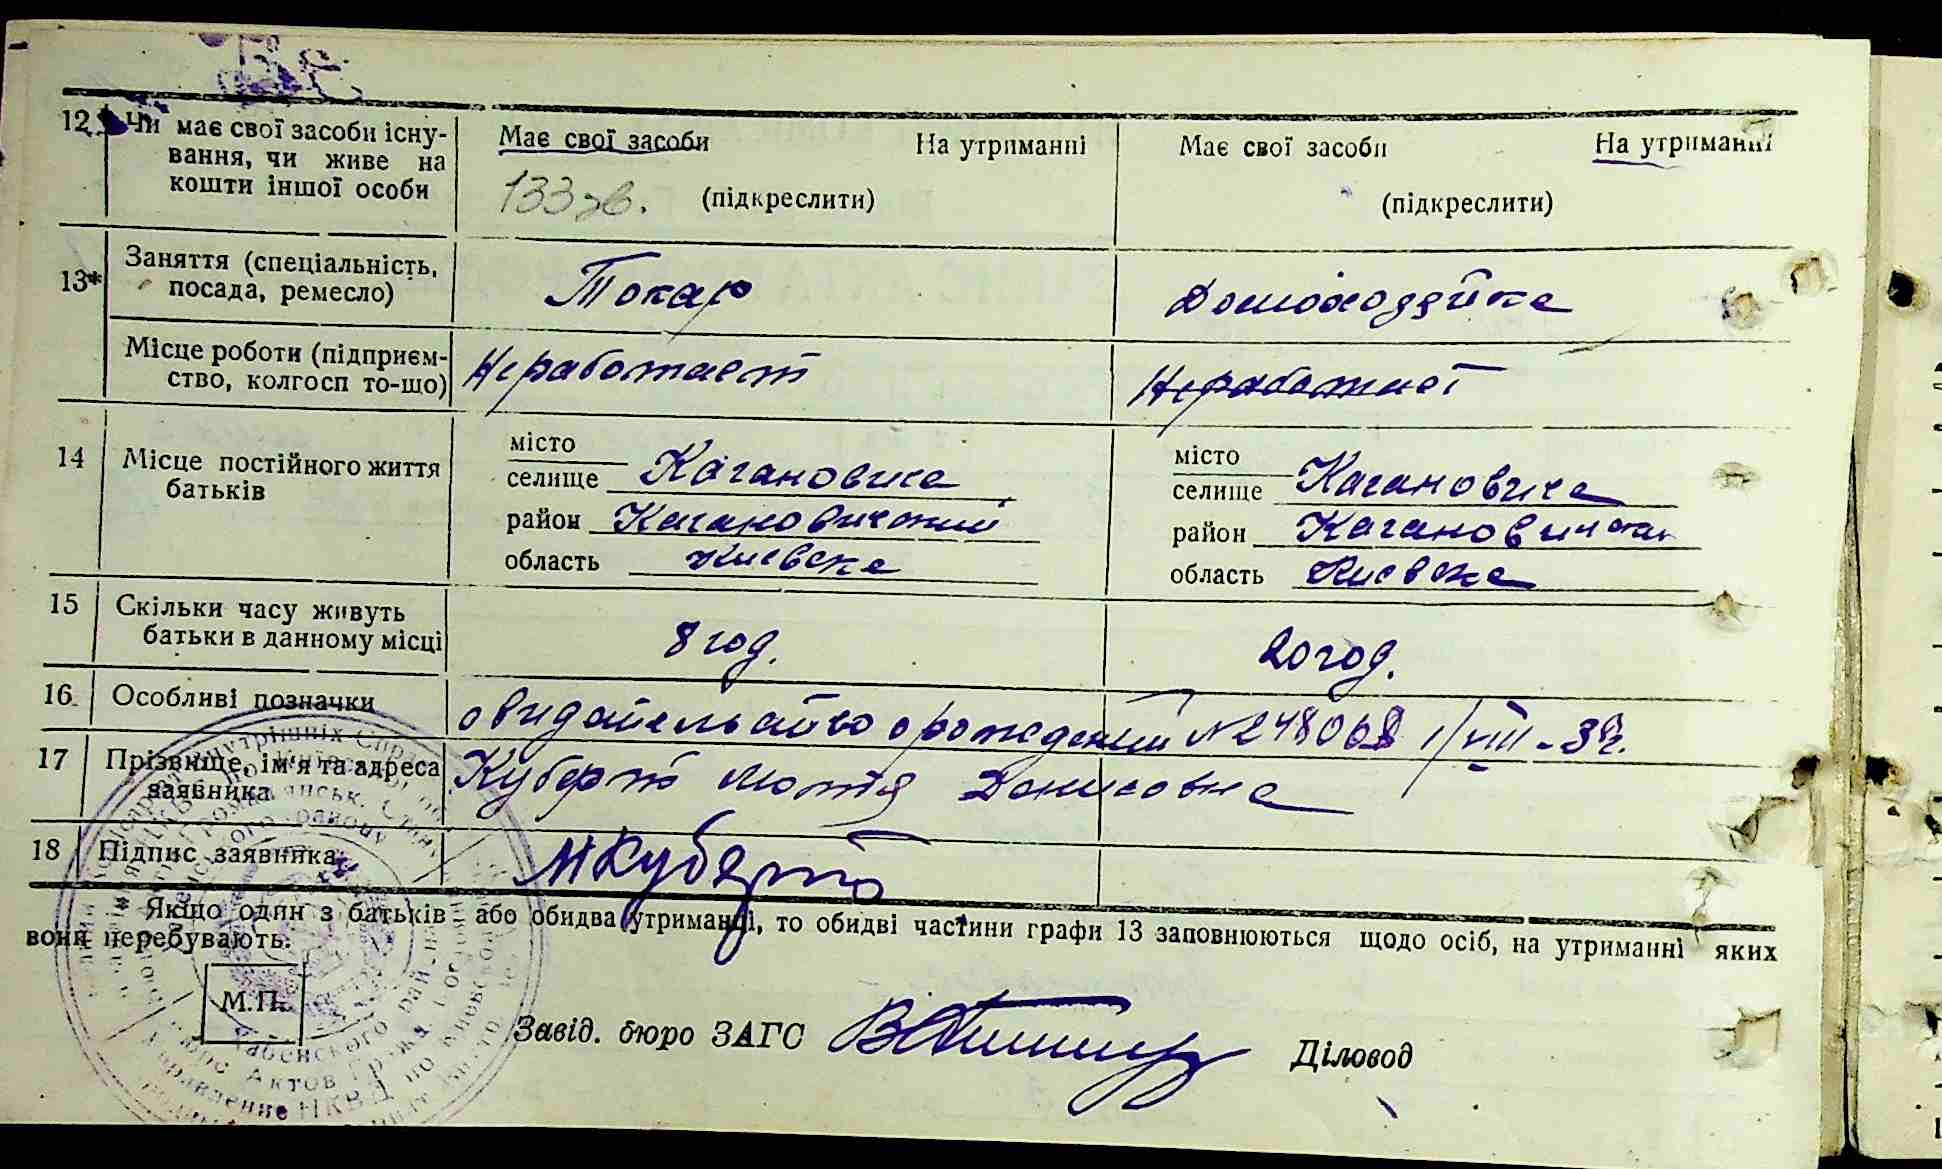 12 Чи має свої засоби існу-
вання, чи живе на
кошти іншої особи
Має свої засоби На утриманні
133 зв. (підкреслити)
Має свої засоби На утриманні
(підкреслити)
13* Заняття (спеціальність,
посада, ремесло)
Токар
Домохозяйка
Місце роботи (підприєм-
ство, колгосп то-що)
Неработает
Неработает
14 Місце постійного життя
батьків
місто
селище Кагановича
район Кагановичский
область Киевска
місто
селище Кагановича
район
область Киевска
15 Скільки часу живуть
батьки в данному місці
8 год.
20 год.
16 Особливі позначки
свидетельство о рождении №248068 1/VIII-39г.
17 Прізвище, ім'я та адреса
заявника
Куберт Мотя Денисовна
18 Підпис заявника
МКуберт
* Якщо один з батьків або обидва утриманці, то обидві частини графи 13 заповнюються щодо осіб, на утриманні яких
вони перебувають.
М.П.
Завід. бюро ЗАГС
Діловод